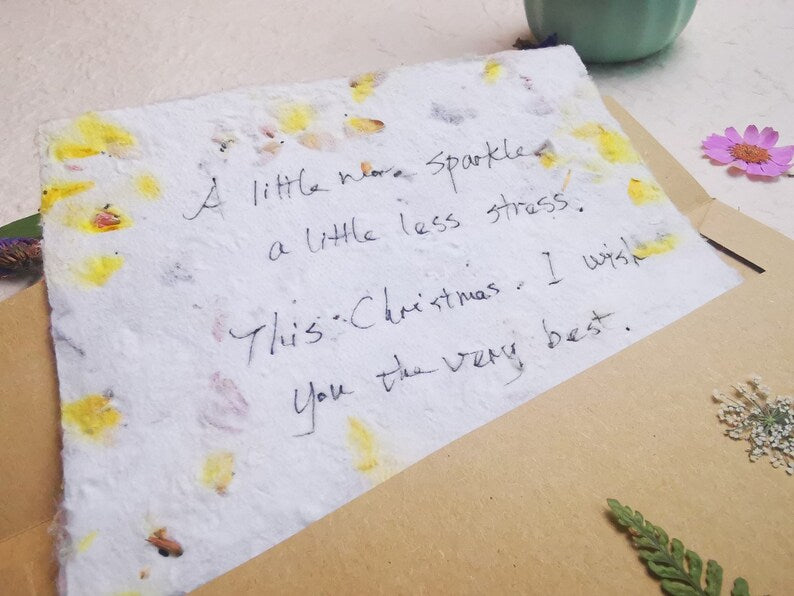 A little more sparkle,
a little less stress.
This Christmas. I wish
you the very best.